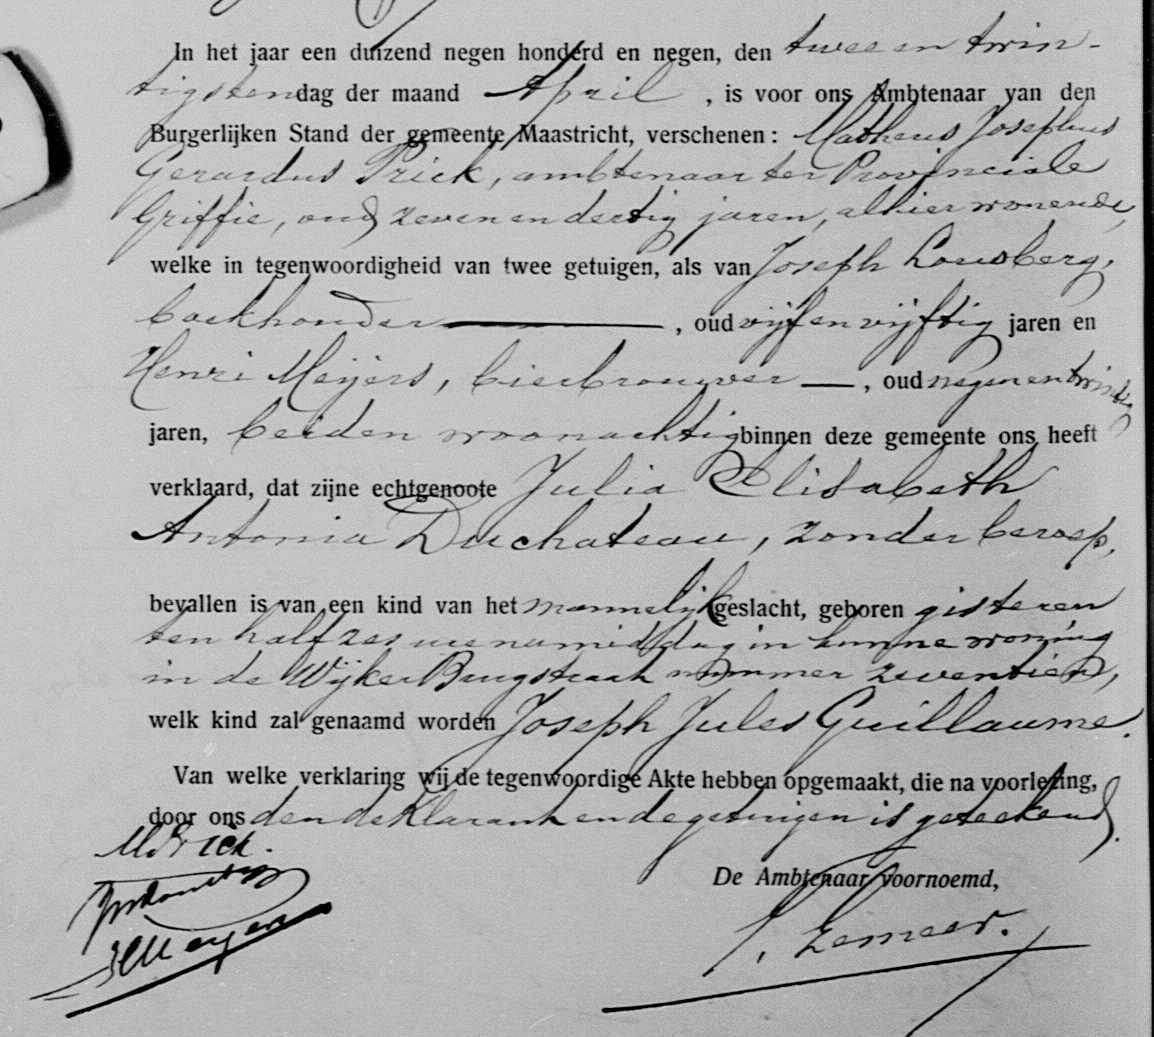 In het jaar een duizend negen honderd en negen, den twee en twin-
tigsten dag der maand April, is voor ons Ambtenaar van den
Burgerlijken Stand der gemeente Maastricht, verschenen: Matheus Josephus
Gerardus Prick, ambtenaar ter Provinciale
Griffie, oud zeven en dertig jaren, alhier wonende,
welke in tegenwoordigheid van twee getuigen, als van Joseph Lousberg,
boekhouder, oud vijf en vijftig jaren en
Henri Meijers, bierbrouwer, oud negen en twintig
jaren, beiden woonachtig binnen deze gemeente ons heeft
verklaard, dat zijne echtgenoote Julia Elisabeth
Antonia Duchateau, zonder beroep,
bevallen is van een kind van het mannelijk geslacht, geboren gisteren
ten half zes ure namiddag in hunne woning
in de Wijker Brugstraat nummer zeventien,
welk kind zal genaamd worden Joseph Jules Guillaume.
Van welke verklaring wij de tegenwoordige Akte hebben opgemaakt, die na voorlezing,
door ons den deklarant en de getuigen is geteekend.
MPrick.
De Ambtenaar voornoemd,
HMeyers